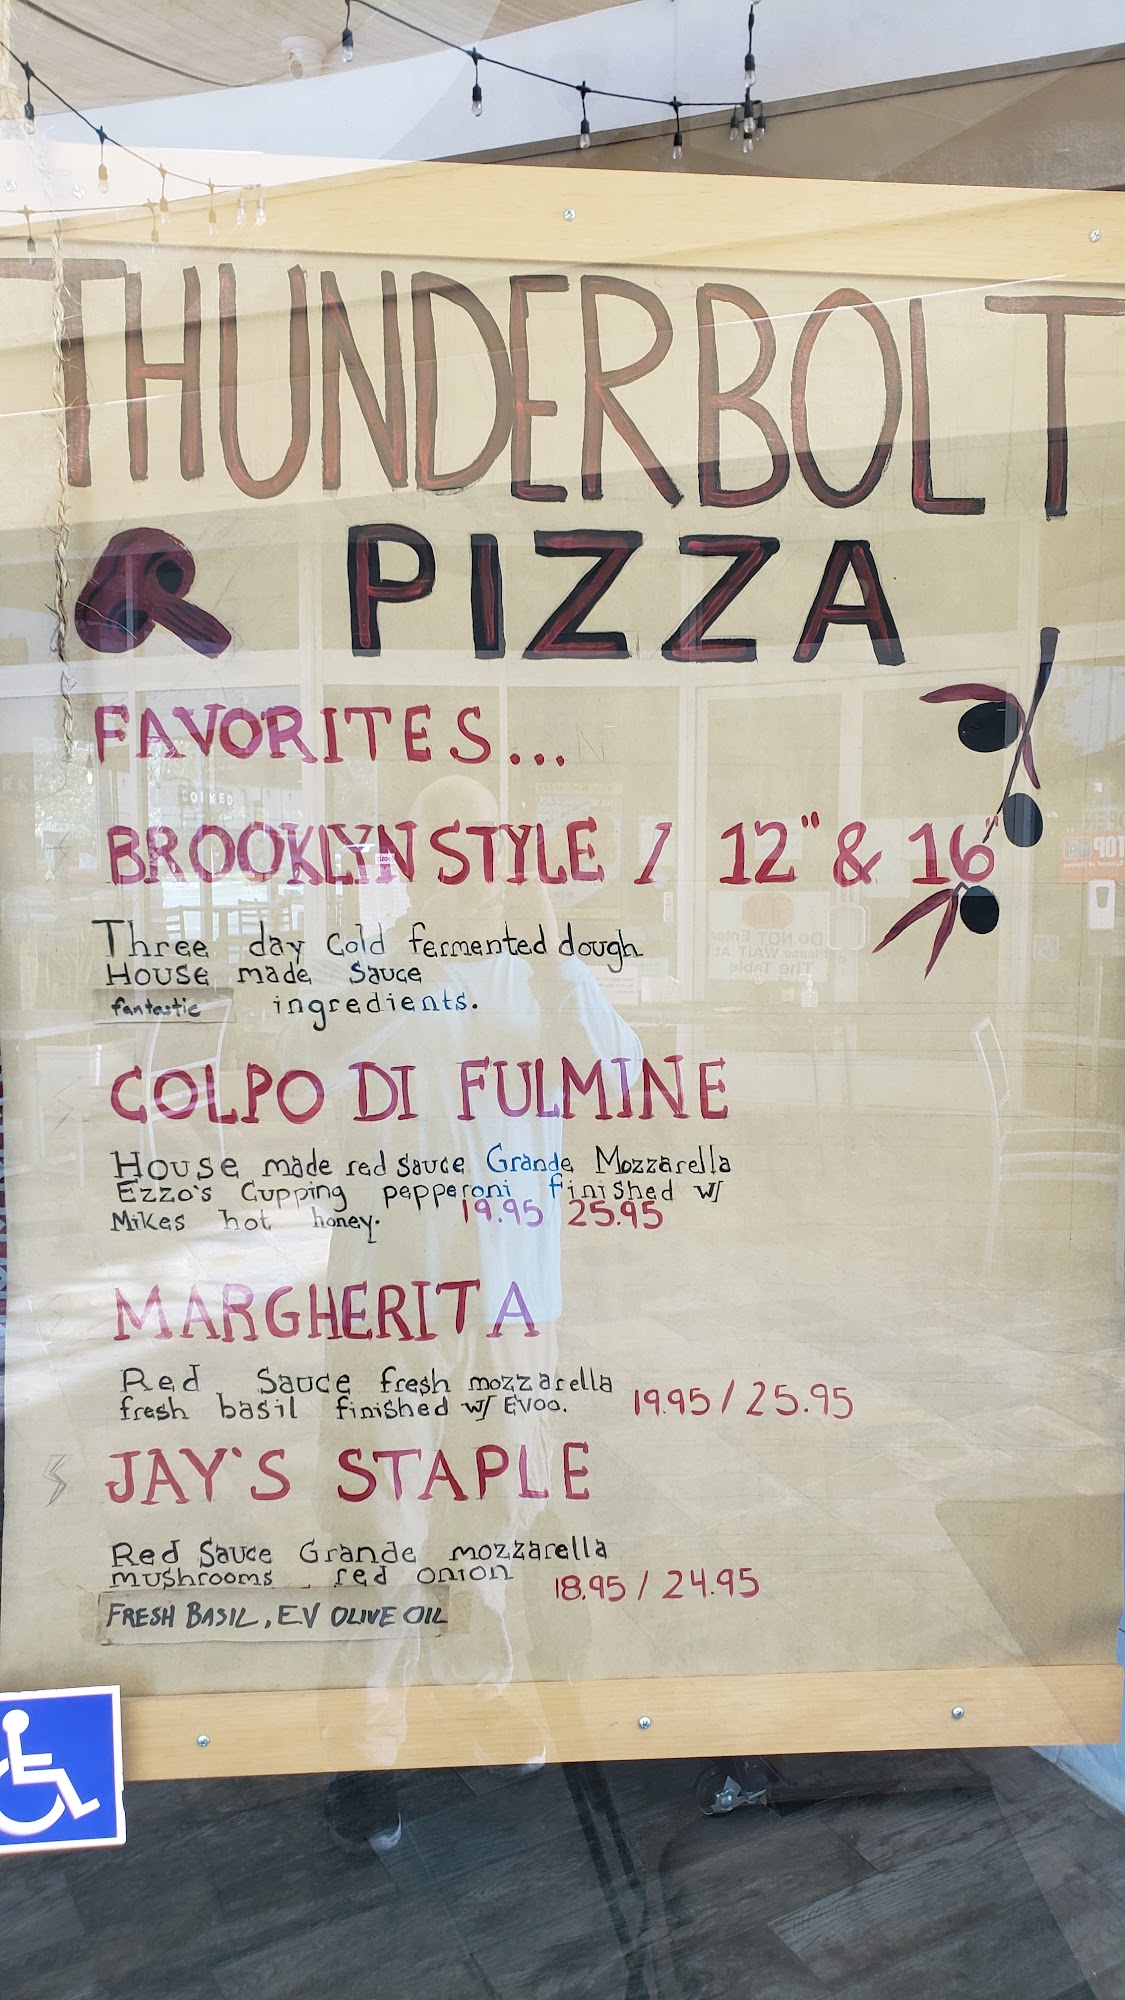 THUNDERBOLT
PIZZA
FAVORITES...
BROOKLYN STYLE / 12" & 16"
Three day cold fermented dough
House made sauce
fantastic ingredients.
COLPO DI FULMINE
House made red sauce Grande Mozzarella
Ezzo's Cupping pepperoni finished w/
Mikes hot honey. 19.95 25.95
MARGHERITA
Red Sauce fresh mozzarella
fresh basil finished w/ EVOO. 19.95 / 25.95
JAY'S STAPLE
Red Sauce Grande mozzarella
mushrooms, red onion 18.95 / 24.95
FRESH BASIL, EV OLIVE OIL
CORKED
Do NOT Enter
Please WAIT At
The Table